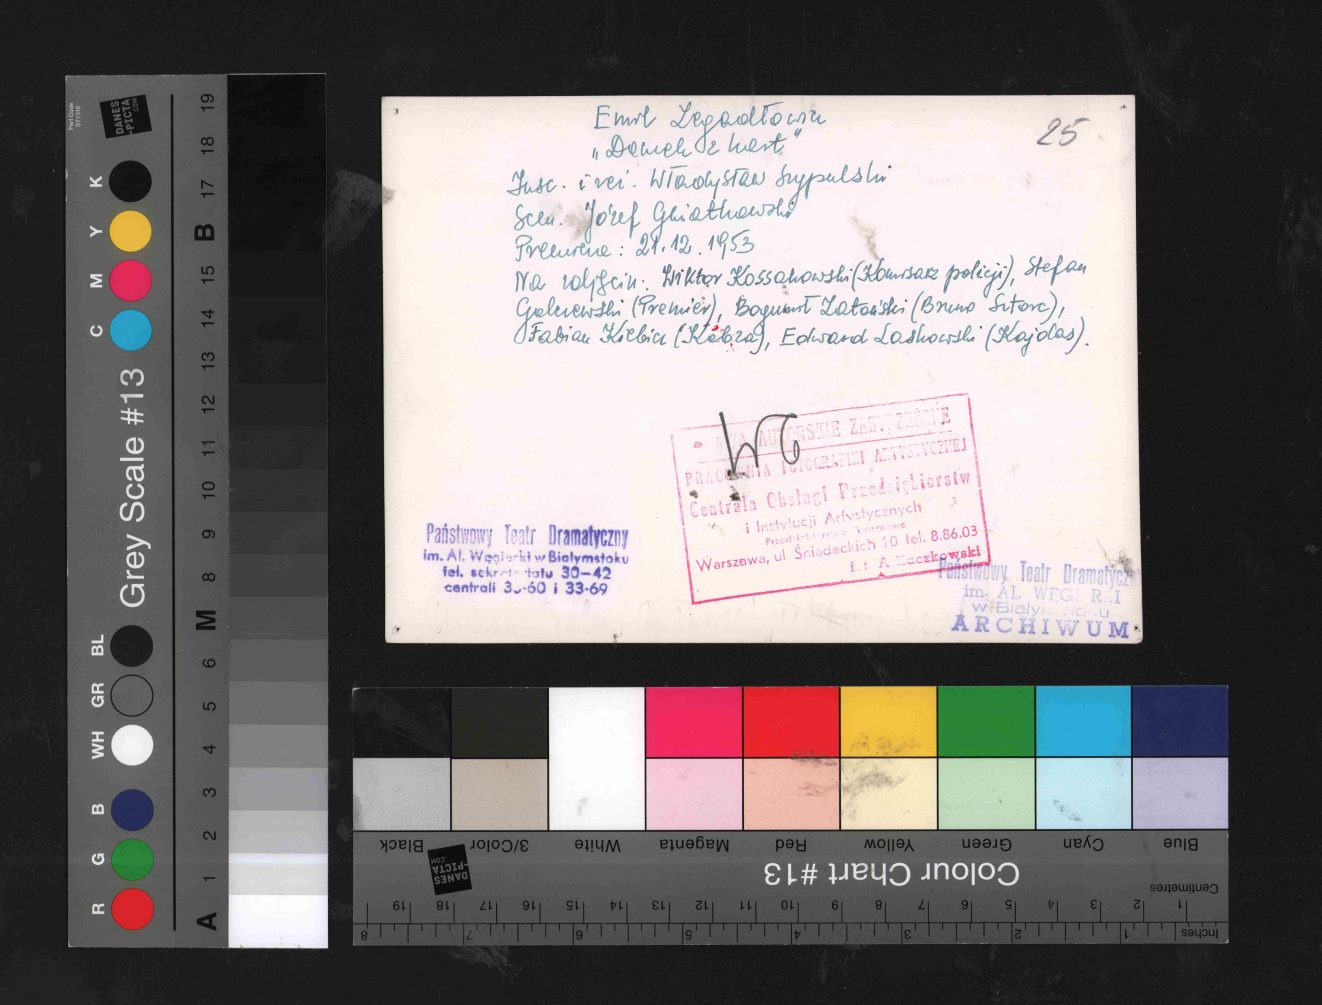 Emil Zegadłowicz
„Domek z kart"
25
Insc. i reż. Władysław Szypulski
Scen. Józef Gniatkowski
Premiera: 21.12.1953
Na zdjęciu: Wiktor Kossakowski (Komisarz policji), Stefan
(Premier), Bogumił Zatoński (Bruno Sztorc),
Fabian Kiebicz (Kobza), Edward Laskowski (Kajdas).
AUTORSKIE
PRACOWNIA FOTOGRAFIKI ARTYSTYCZNEJ
Centrala Obsługi Przedsiębiorstw
i Instytucji Artystycznych
Warszawa, ul Śniadeckich 10 tel. 8.86.03
f.t A Kaczkowski
Państwowy Teatr Dramatyczny
im. Al. Węgierki w Białymstoku
tel. sekretariatu 30-42
centrali 33-60 i 33-69
Państwowy Teatr Dramatyczn
im. AL WĘGIERKI
w Białymstoku
ARCHIWUM
Part Code
ST1316
DANES
-PICTA
.COM
Grey Scale #13
R G B WH GR BL C M Y K
A 1 2 3 4 5 6 M 8 9 10 11 12 13 14 15 B 17 18 19
Black 3/Color White Magenta Red Yellow Green Cyan Blue
DANES
-PICTA
.COM
Colour Chart #13
Centimetres
1 2 3 4 5 6 7 8 9 10 11 12 13 14 15 16 17 18 19
Inches 1 2 3 4 5 6 7 8